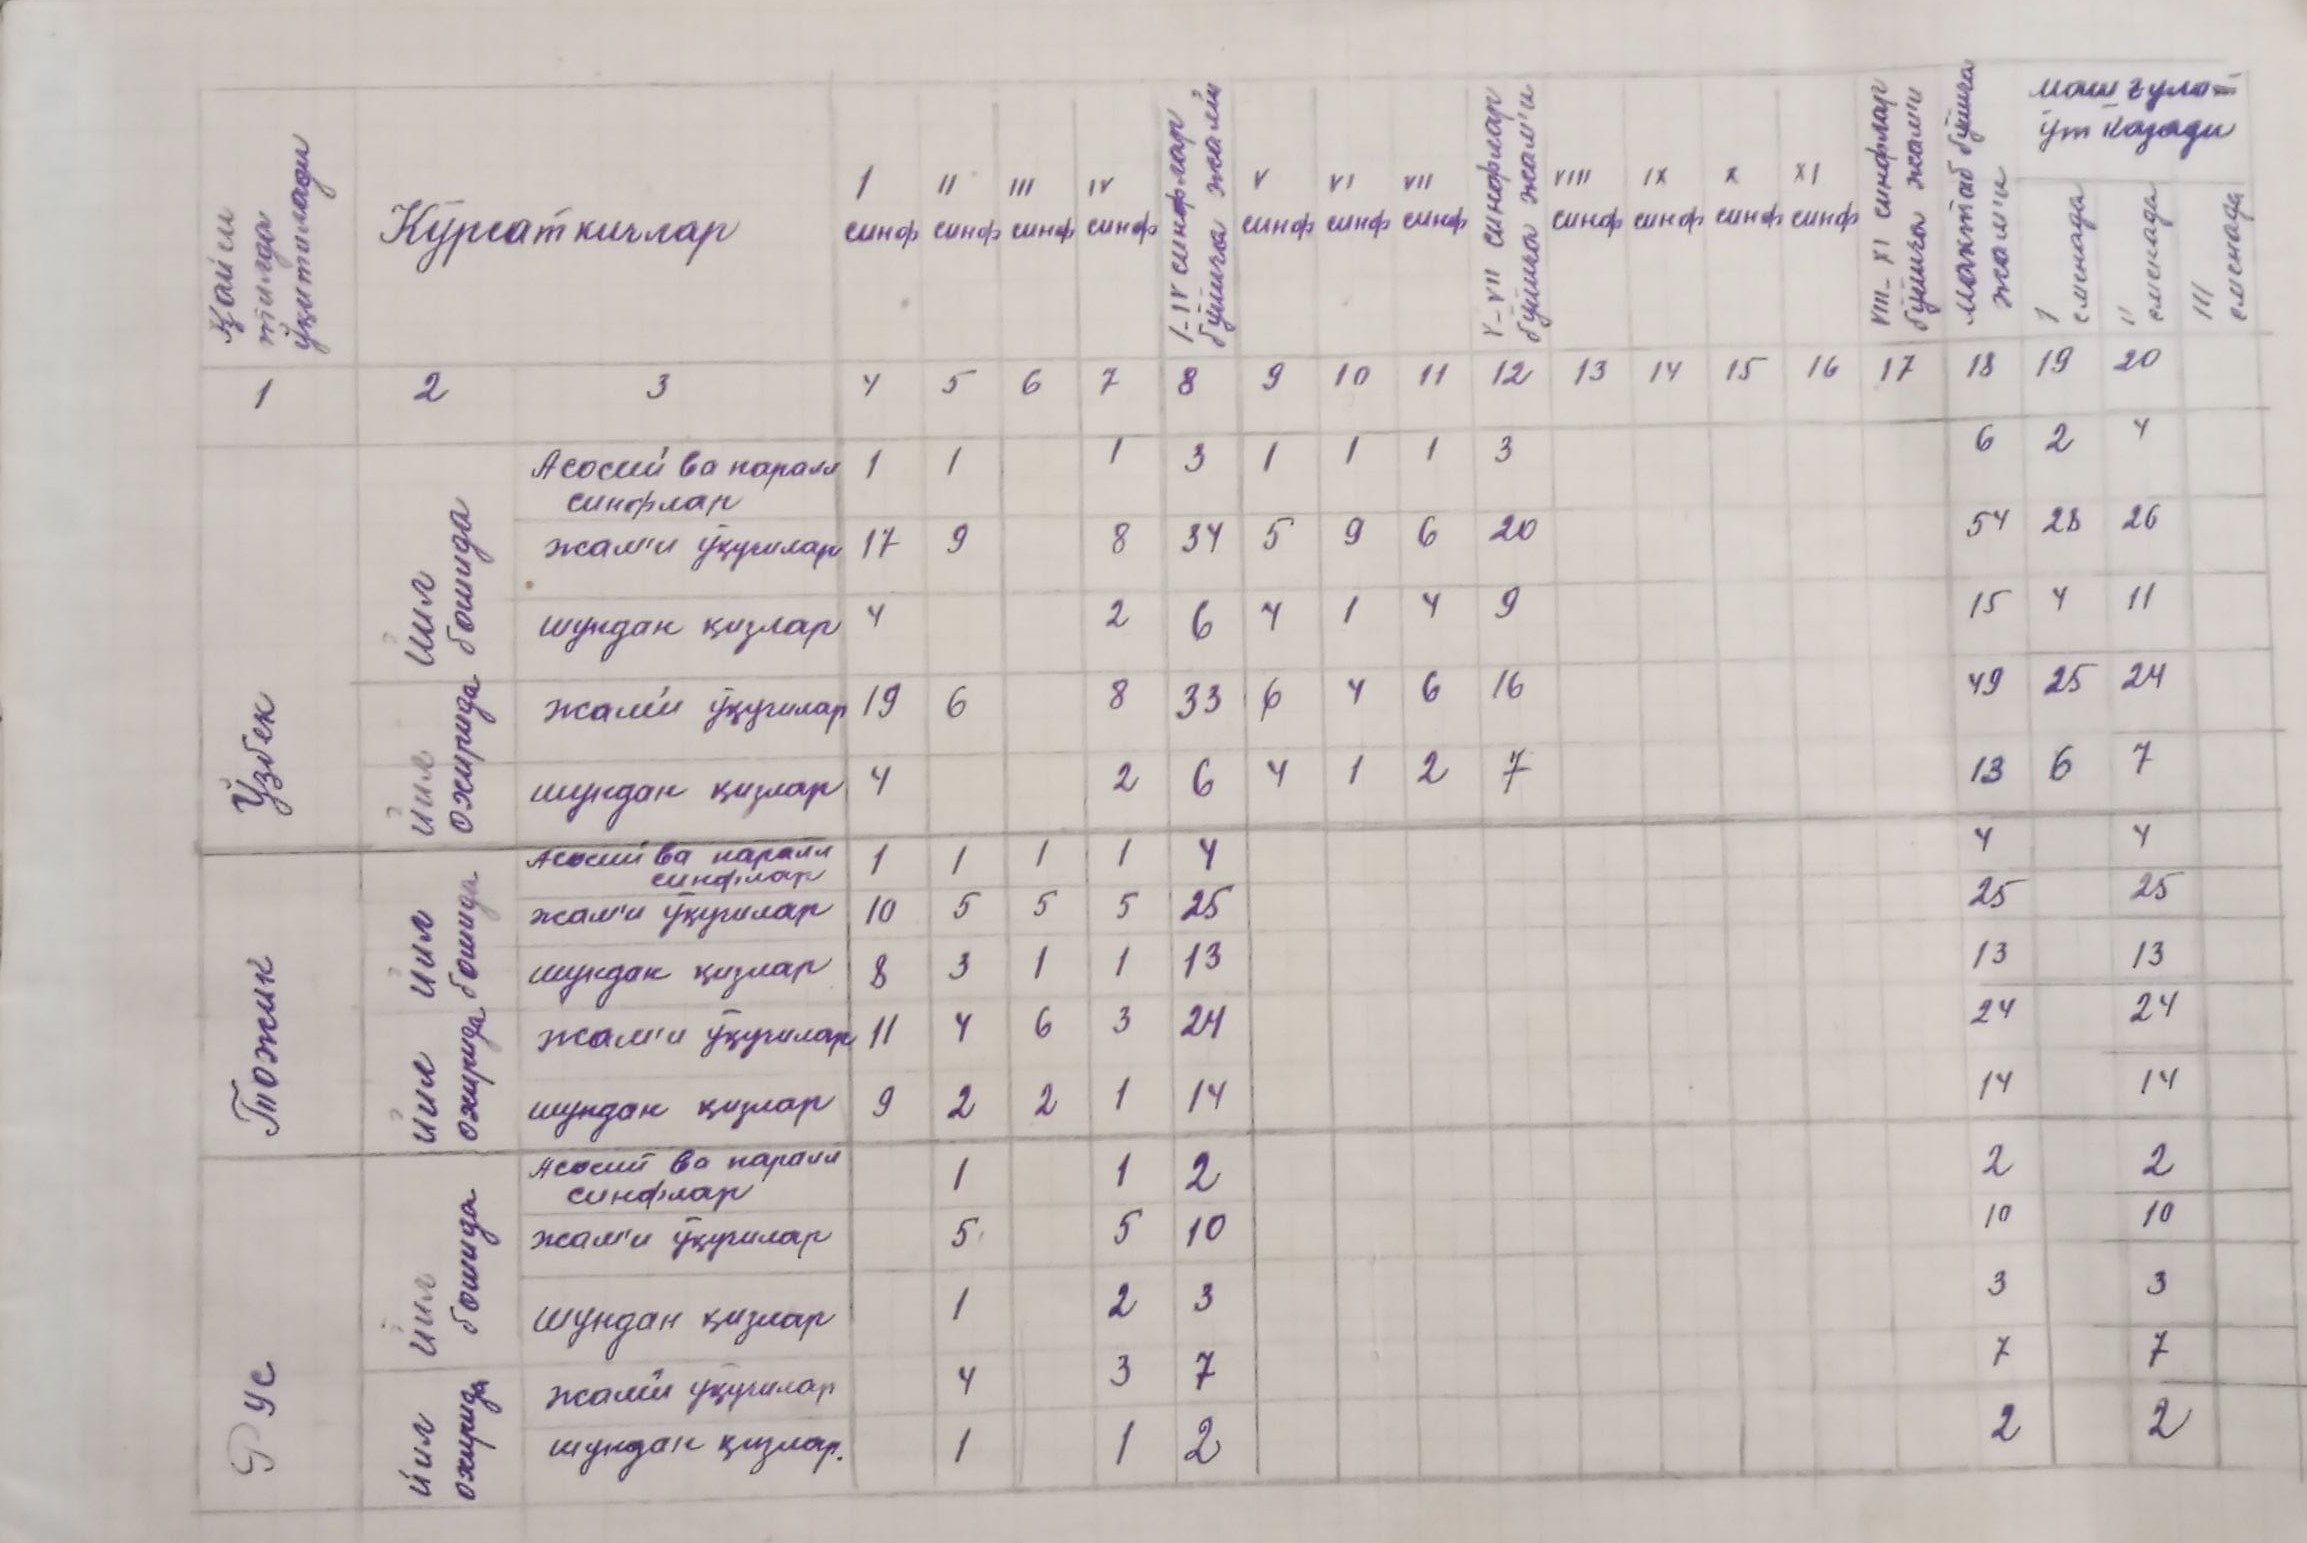 Қайси тилда ўқитилади
Кўрсаткичлар
I синф
II синф
III синф
IV синф
I-IV синфлар бўйича жами
V синф
VI синф
VII синф
V-VII синфлар бўйича жаъми
VIII синф
IX синф
X синф
XI синф
VIII-XI синфлар бўйича жаъми
Мактаб бўйича жаъми
машғулот
ўтказади
I сменада
II сменада
III сменада
1 2 3 4 5 6 7 8 9 10 11 12 13 14 15 16 17 18 19 20
Ўзбек
Йил бошида
Асосий ва паралл 1 1 1 3 1 1 1 3 6 2 4
синфлар
жаъми ўқучилар 17 9 8 34 5 9 6 20 54 28 26
шундан қизлар 4 2 6 4 1 4 9 15 4 11
Йил охирида
жаъми ўқучилар 19 6 8 33 6 4 6 16 49 25 24
шундан қизлар 4 2 6 4 1 2 7 13 6 7
Тожик
Йил бошида
Асосий ва паралл 1 1 1 1 4 4 4
синфлар
жаъми ўқучилар 10 5 5 5 25 25 25
шундан қизлар 8 3 1 1 13 13 13
Йил охирида
жаъми ўқучилар 11 4 6 3 24 24 24
шундан қизлар 9 2 2 1 14 14 14
Рус
Йил бошида
Асосий ва паралл 1 1 2 2 2
синфлар
жаъми ўқучилар 5 5 10 10 10
шундан қизлар 1 2 3 3 3
Йил охирида
жаъми ўқучилар 4 3 7 7 7
шундан қизлар. 1 1 2 2 2